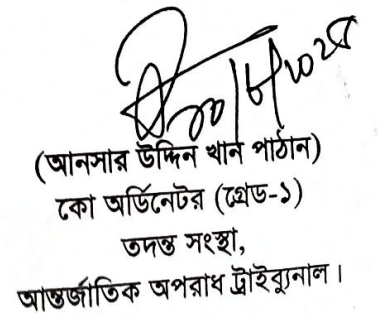 (আনসার উদ্দিন খান পাঠান)
কো অর্ডিনেটর (গ্রেড-১)
তদন্ত সংস্থা,
আন্তর্জাতিক অপরাধ ট্রাইব্যুনাল।